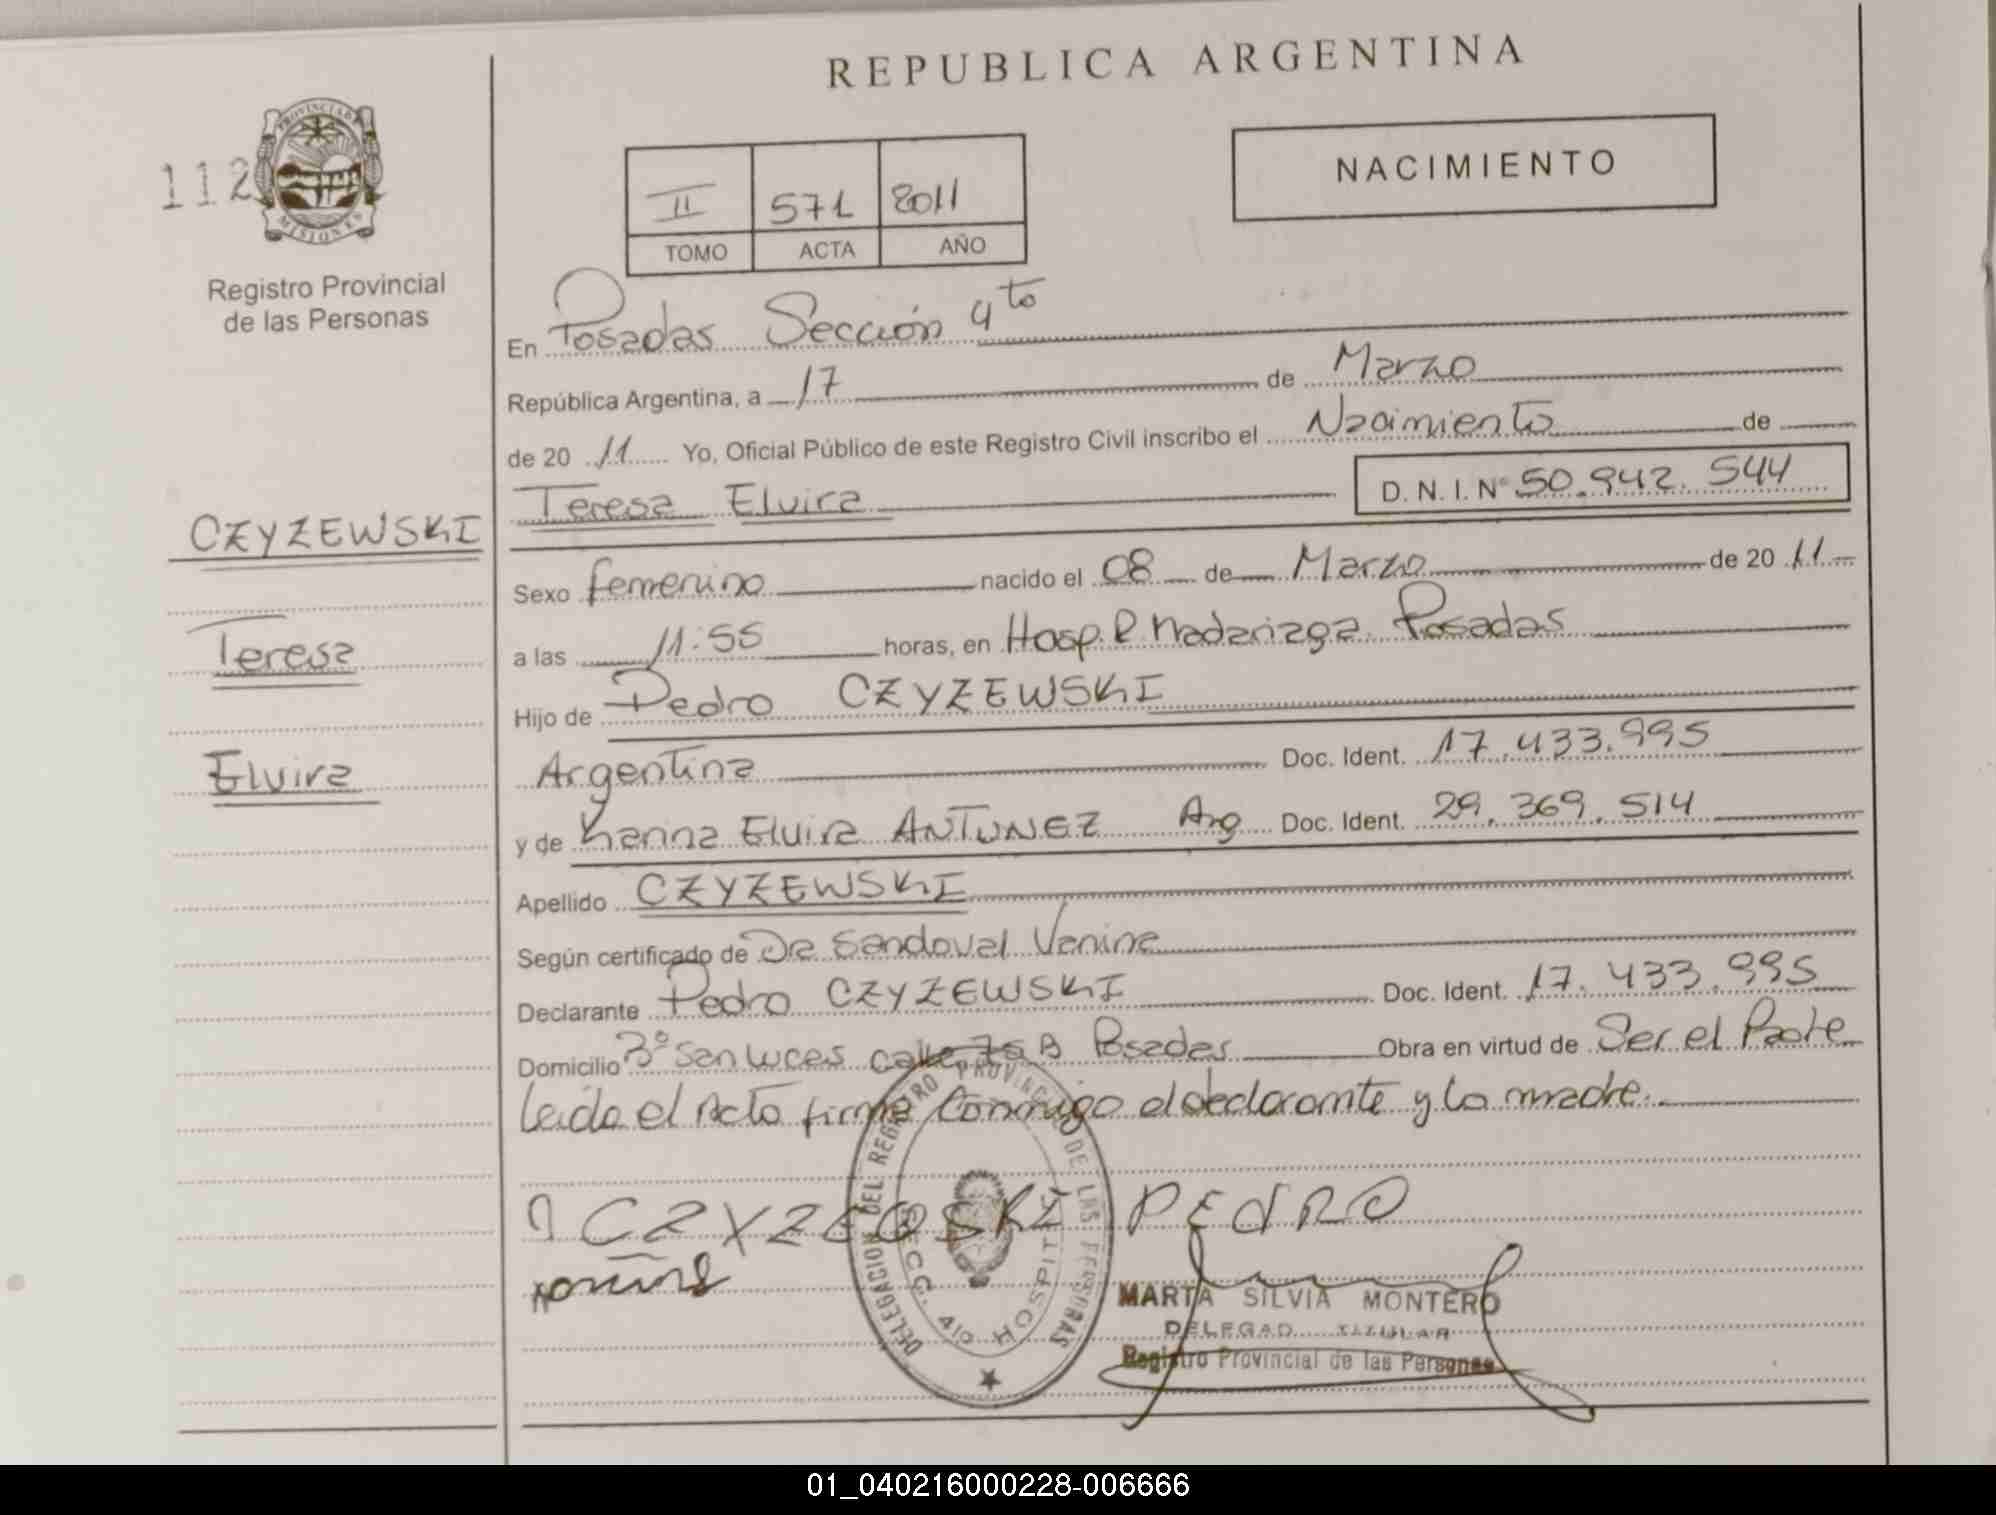 REPUBLICA ARGENTINA
112
PROVINCIA DE
MISIONES
Registro Provincial
de las Personas
II 571 2011
TOMO ACTA AÑO
NACIMIENTO
En Posadas Sección 4to
República Argentina, a 17 de Marzo
de 20 11 Yo, Oficial Público de este Registro Civil inscribo el Nacimiento de
Teresa Elvira D. N. I. Nº 50.942.544
CZYZEWSKI
Teresa
Elvira
Sexo femenino nacido el 08 de Marzo de 20 11
a las 11:55 horas, en Hosp. R Madariaga Posadas
Hijo de Pedro CZYZEWSKI
Argentina Doc. Ident. 17.433.995
y de Karina Elvira ANTUNEZ Arg Doc. Ident. 29.369.514
Apellido CZYZEWSKI
Según certificado de Dra Sandoval Vanina
Declarante Pedro CZYZEWSKI Doc. Ident. 17.433.995
Domicilio Bº San Lucas calle 75 B Posadas Obra en virtud de Ser el Padre
Leido el Acta firma Conmigo el declarante y la madre.
CZYZEOSKI PEDRO
DELEGACION DEL REGISTRO PROVINCIAL DE LAS PERSONAS
SECC. 4to HOSPITAL
MARTA SILVIA MONTERO
DELEGAD TITULAR
Registro Provincial de las Personas
01_040216000228-006666